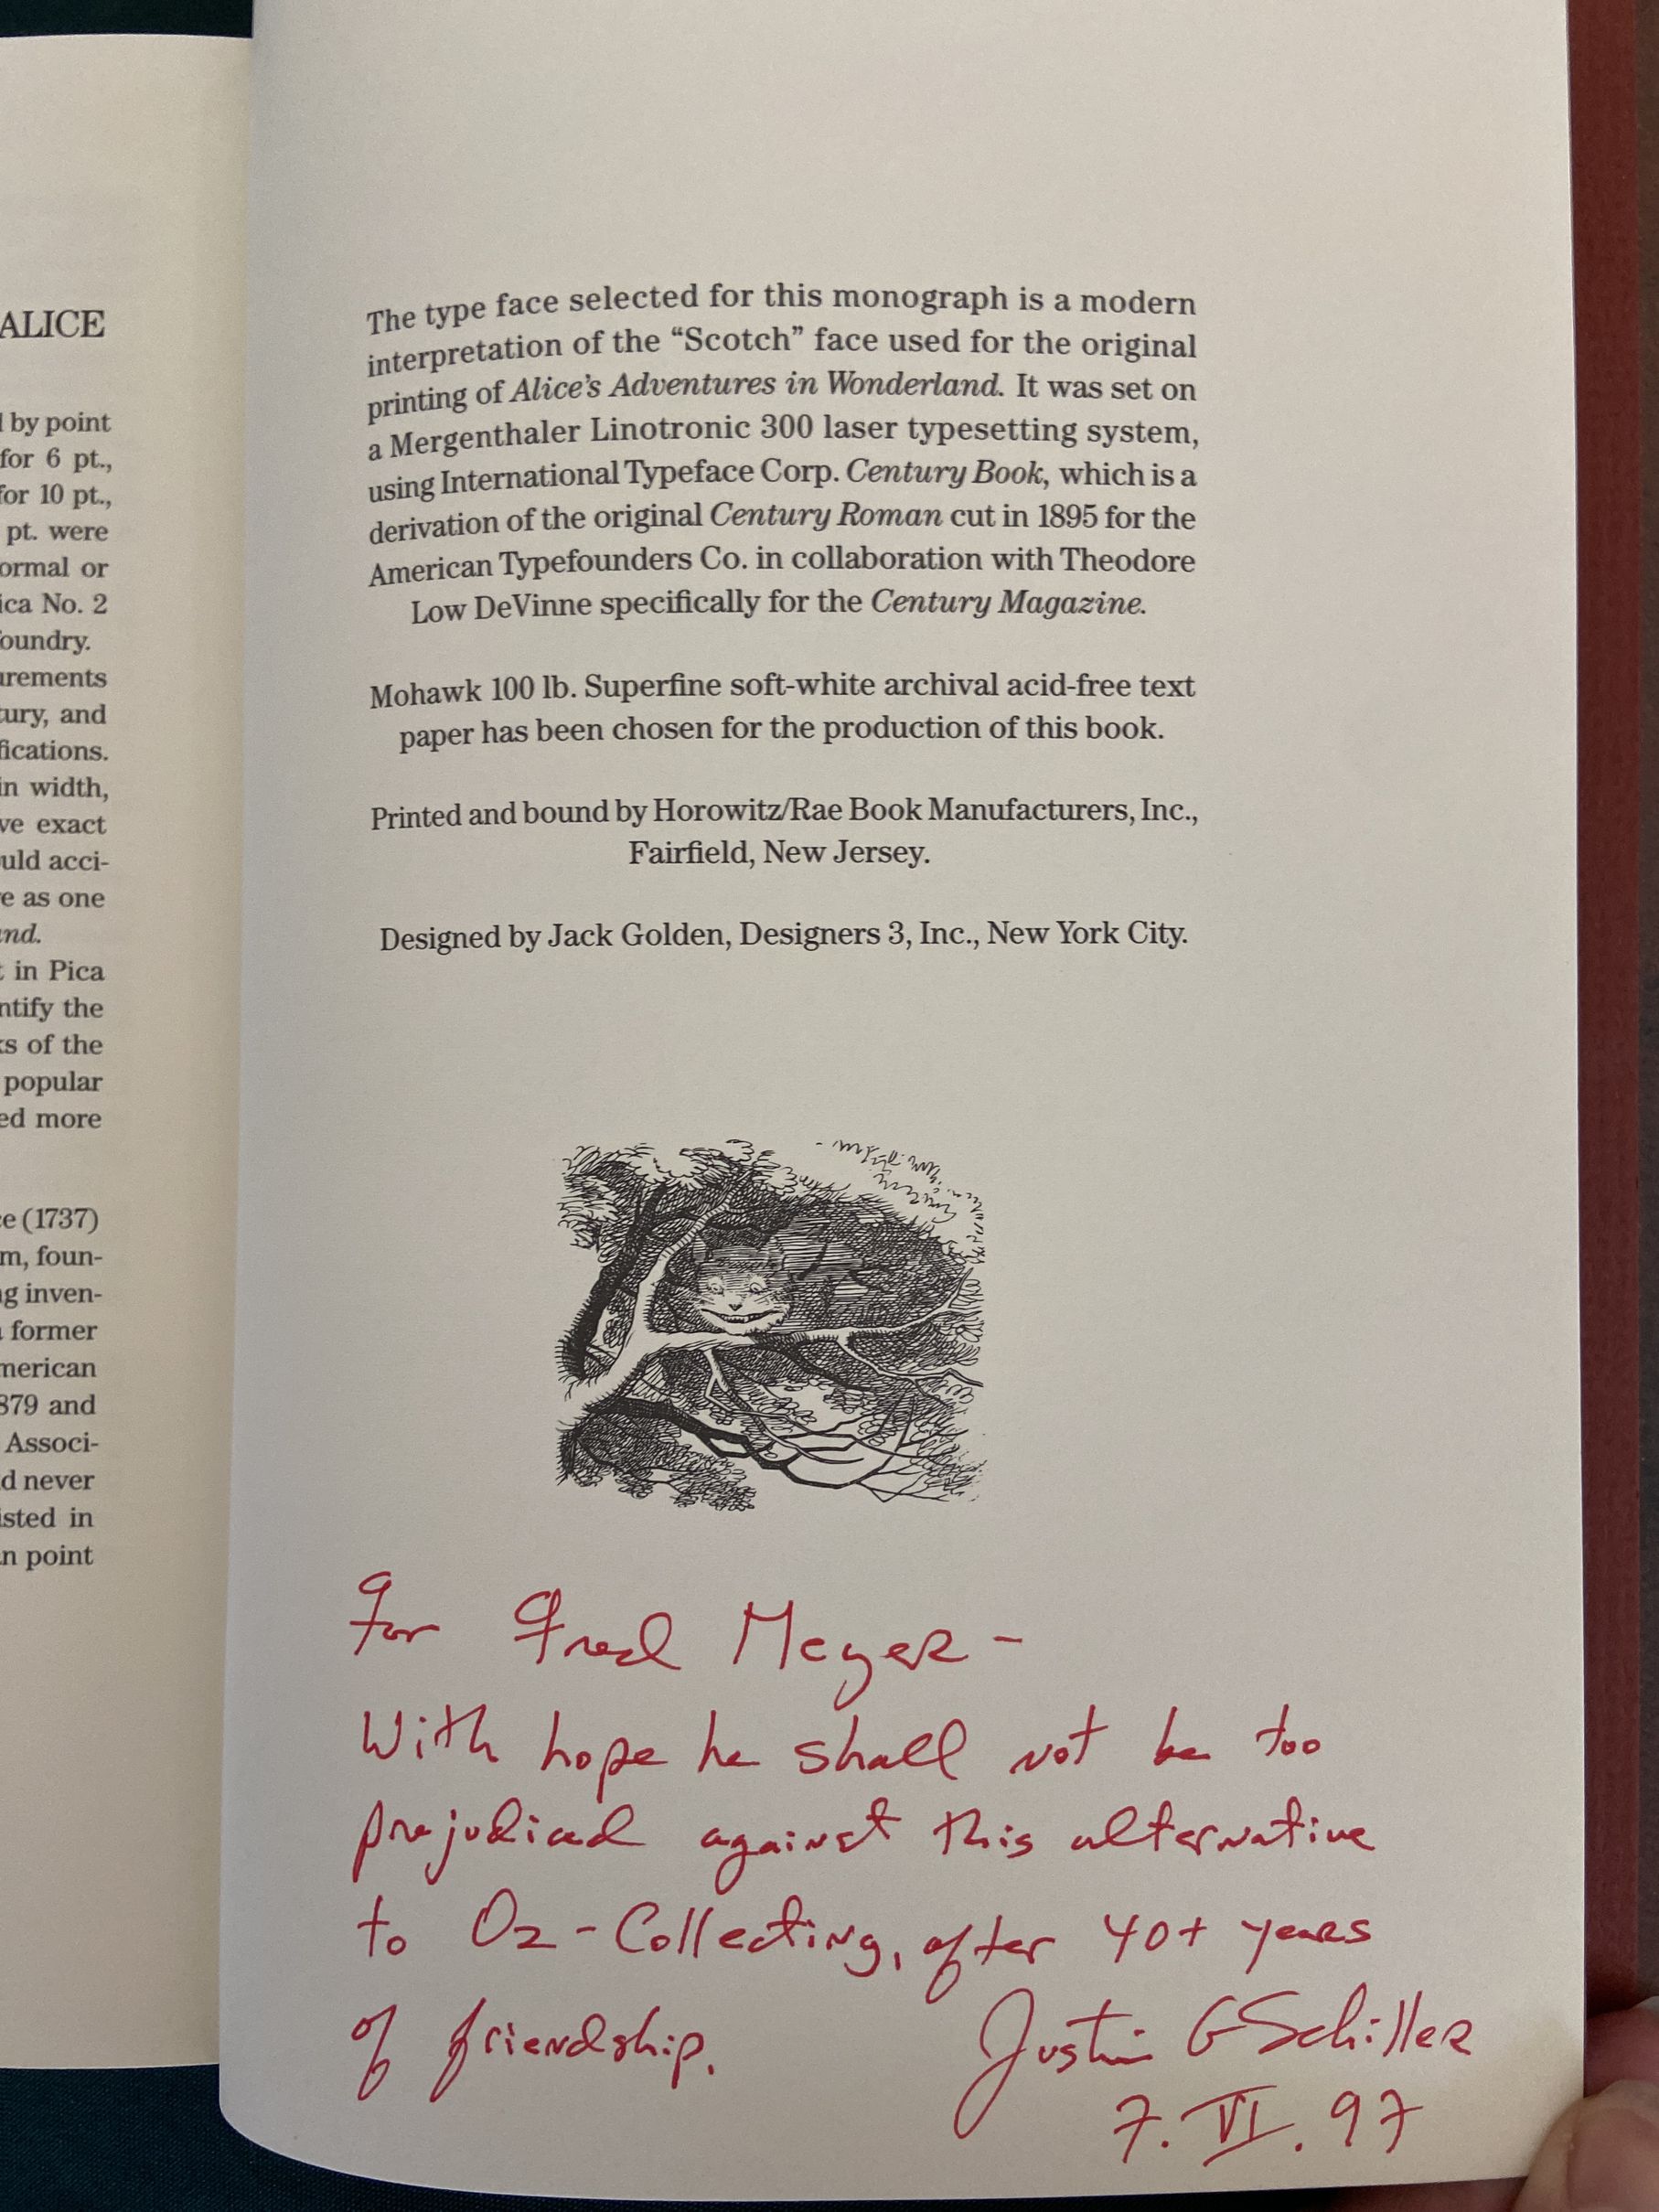 ALICE
by point
for 6 pt.,
for 10 pt.,
pt. were
or
No. 2
and
in width,
exact
acci-
e as one
in Pica
the
of the
popular
more
(1737)
foun-
inven-
former
and
Associ-
never
in
point
The type face selected for this monograph is a modern
interpretation of the “Scotch” face used for the original
printing of Alice’s Adventures in Wonderland. It was set on
a Mergenthaler Linotronic 300 laser typesetting system,
using International Typeface Corp. Century Book, which is a
derivation of the original Century Roman cut in 1895 for the
American Typefounders Co. in collaboration with Theodore
Low DeVinne specifically for the Century Magazine.
Mohawk 100 lb. Superfine soft-white archival acid-free text
paper has been chosen for the production of this book.
Printed and bound by Horowitz/Rae Book Manufacturers, Inc.,
Fairfield, New Jersey.
Designed by Jack Golden, Designers 3, Inc., New York City.
For Fred Meyer –
With hope he shall not be too
prejudiced against this alternative
to Oz-Collecting, after 40+ years
of friendship.
Justin G Schiller
7. VI. 97